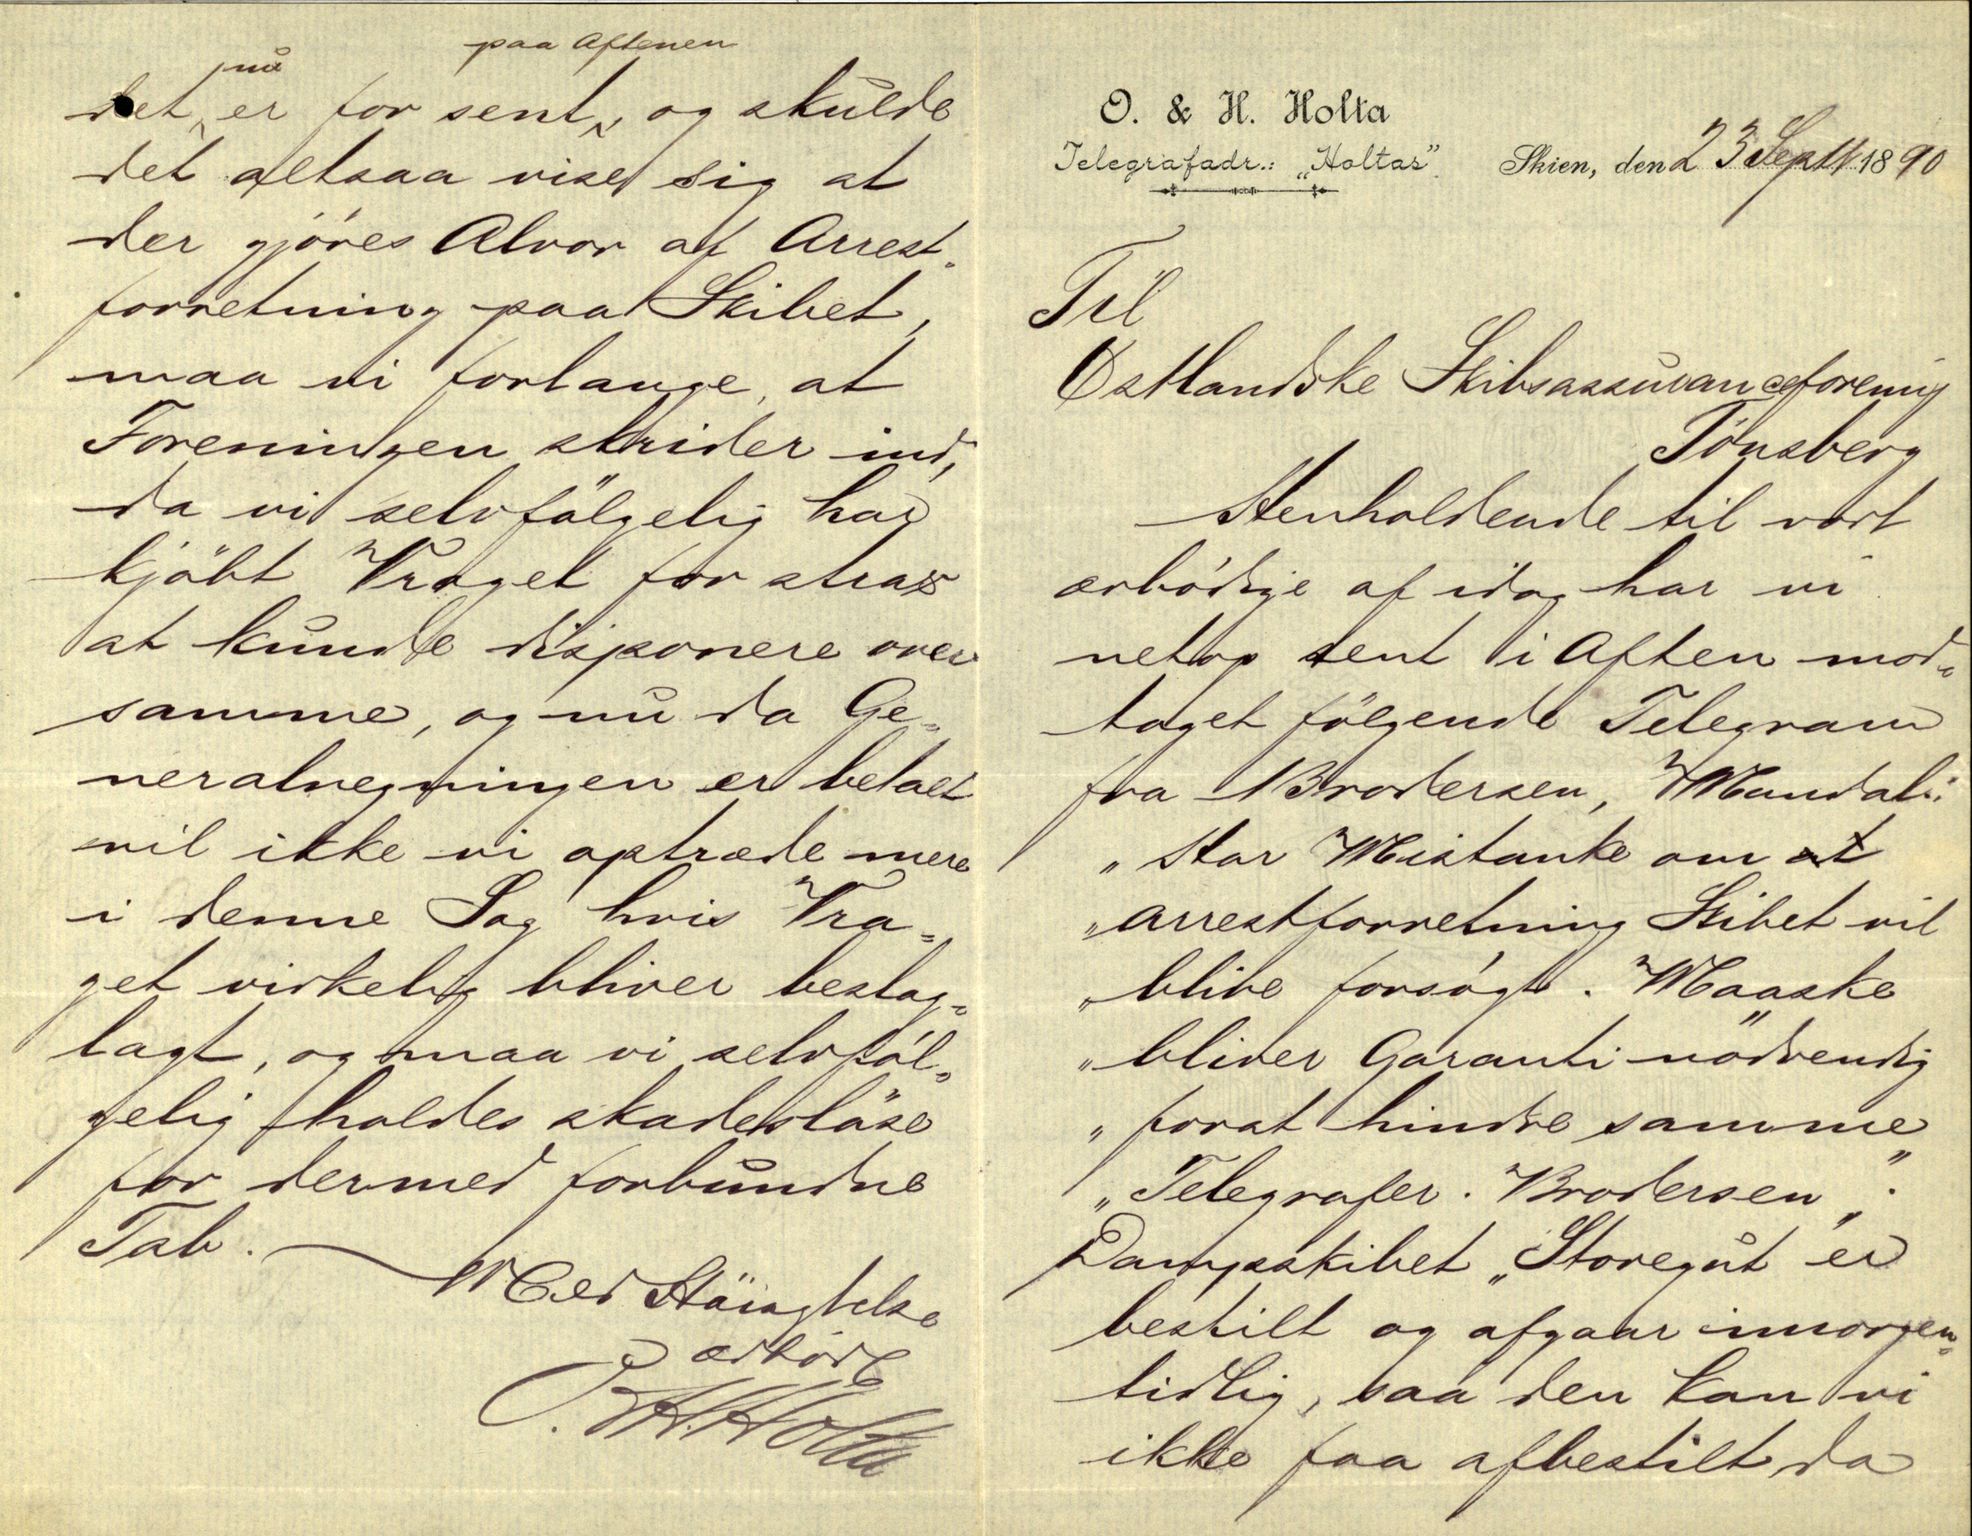 O. & H. Holta
Telegrafadr.: „Holtas".
Skien, den 23 Septbr 1890
Til
Östlandske Skibsassuranceforening
Tönsberg
Henholdende til vort
ærbödige af idag har vi
netop sent i Aften mod-
taget fölgende Telegram
fra Brodersen, Mandal:
„Har Mistanke om at
„arrestforretning Skibet vil
„blive forsögt. Maaske
„bliver Garanti nödvendig
„forat hindre samme
„Telegrafer. Brodersen".
Dampskibet „Storegut" er
bestilt og afgaar imorgen-
tidlig, saa den kan vi
ikke faa afbestilt, da
det nu er for sent paa Aftenen, og skulde
det altsaa vise sig at
der gjöres Alvor af Arrest-
forretning paa Skibet,
maa vi forlange, at
Foreningen skrider ind,
da vi selvfölgelig har
kjöbt Vraget for strax
at kunde disponere over
samme, og nu da Ge-
neralregningen er betalt
vil ikke vi optræde mere
i denne Sag hvis Vra-
get virkelig bliver beslag-
lagt, og maa vi selvföl-
gelig holdes skadeslöse
for dermed forbundne
Tab.
Med Höiagtelse
ærbödigst
O. & H. Holta